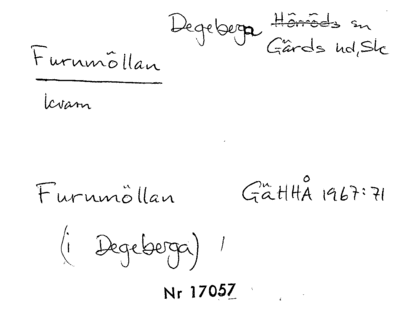 Degeberga Hörröds sn
Gärds hd, Sk
Furnmöllan
kvarn
Furnmöllan GäHHÅ 1967:71
(i Degeberga) /
Nr 17057